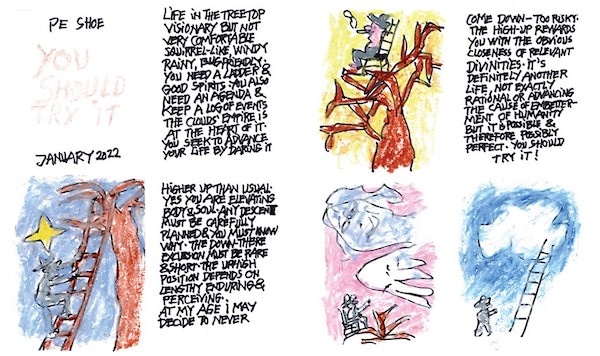 PE SHOE
YOU
SHOULD
TRY IT
JANUARY 2022
LIFE IN THE TREETOP
VISIONARY BUT NOT
VERY COMFORTABLE
SQUIRREL-LIKE, WINDY
RAINY, BUG FRIENDLY.
YOU NEED A LADDER &
GOOD SPIRITS. YOU ALSO
NEED AN AGENDA &
KEEP A LOG OF EVENTS
THE CLOUDS' EMPIRE IS
AT THE HEART OF IT.
YOU SEEK TO ADVANCE
YOUR LIFE BY DARING IT
HIGHER UP THAN USUAL.
YES YOU ARE ELEVATING
BODY & SOUL. ANY DESCENT
MUST BE CAREFULLY
PLANNED & YOU MUST KNOW
WHY. THE DOWN-THERE
EXCURSION MUST BE RARE
& SHORT. THE UPHIGH
POSITION DEPENDS ON
LENGTHY ENDURING &
PERCEIVING.
AT MY AGE I MAY
DECIDE TO NEVER
COME DOWN – TOO RISKY.
THE HIGH-UP REWARDS
YOU WITH THE OBVIOUS
CLOSENESS OF RELEVANT
DIVINITIES. IT'S
DEFINITELY ANOTHER
LIFE, NOT EXACTLY
RATIONAL OR ADVANCING
THE CAUSE OF EMBETTER-
MENT OF HUMANITY
BUT IT IS POSSIBLE &
THEREFORE POSSIBLY
PERFECT. YOU SHOULD
TRY IT!